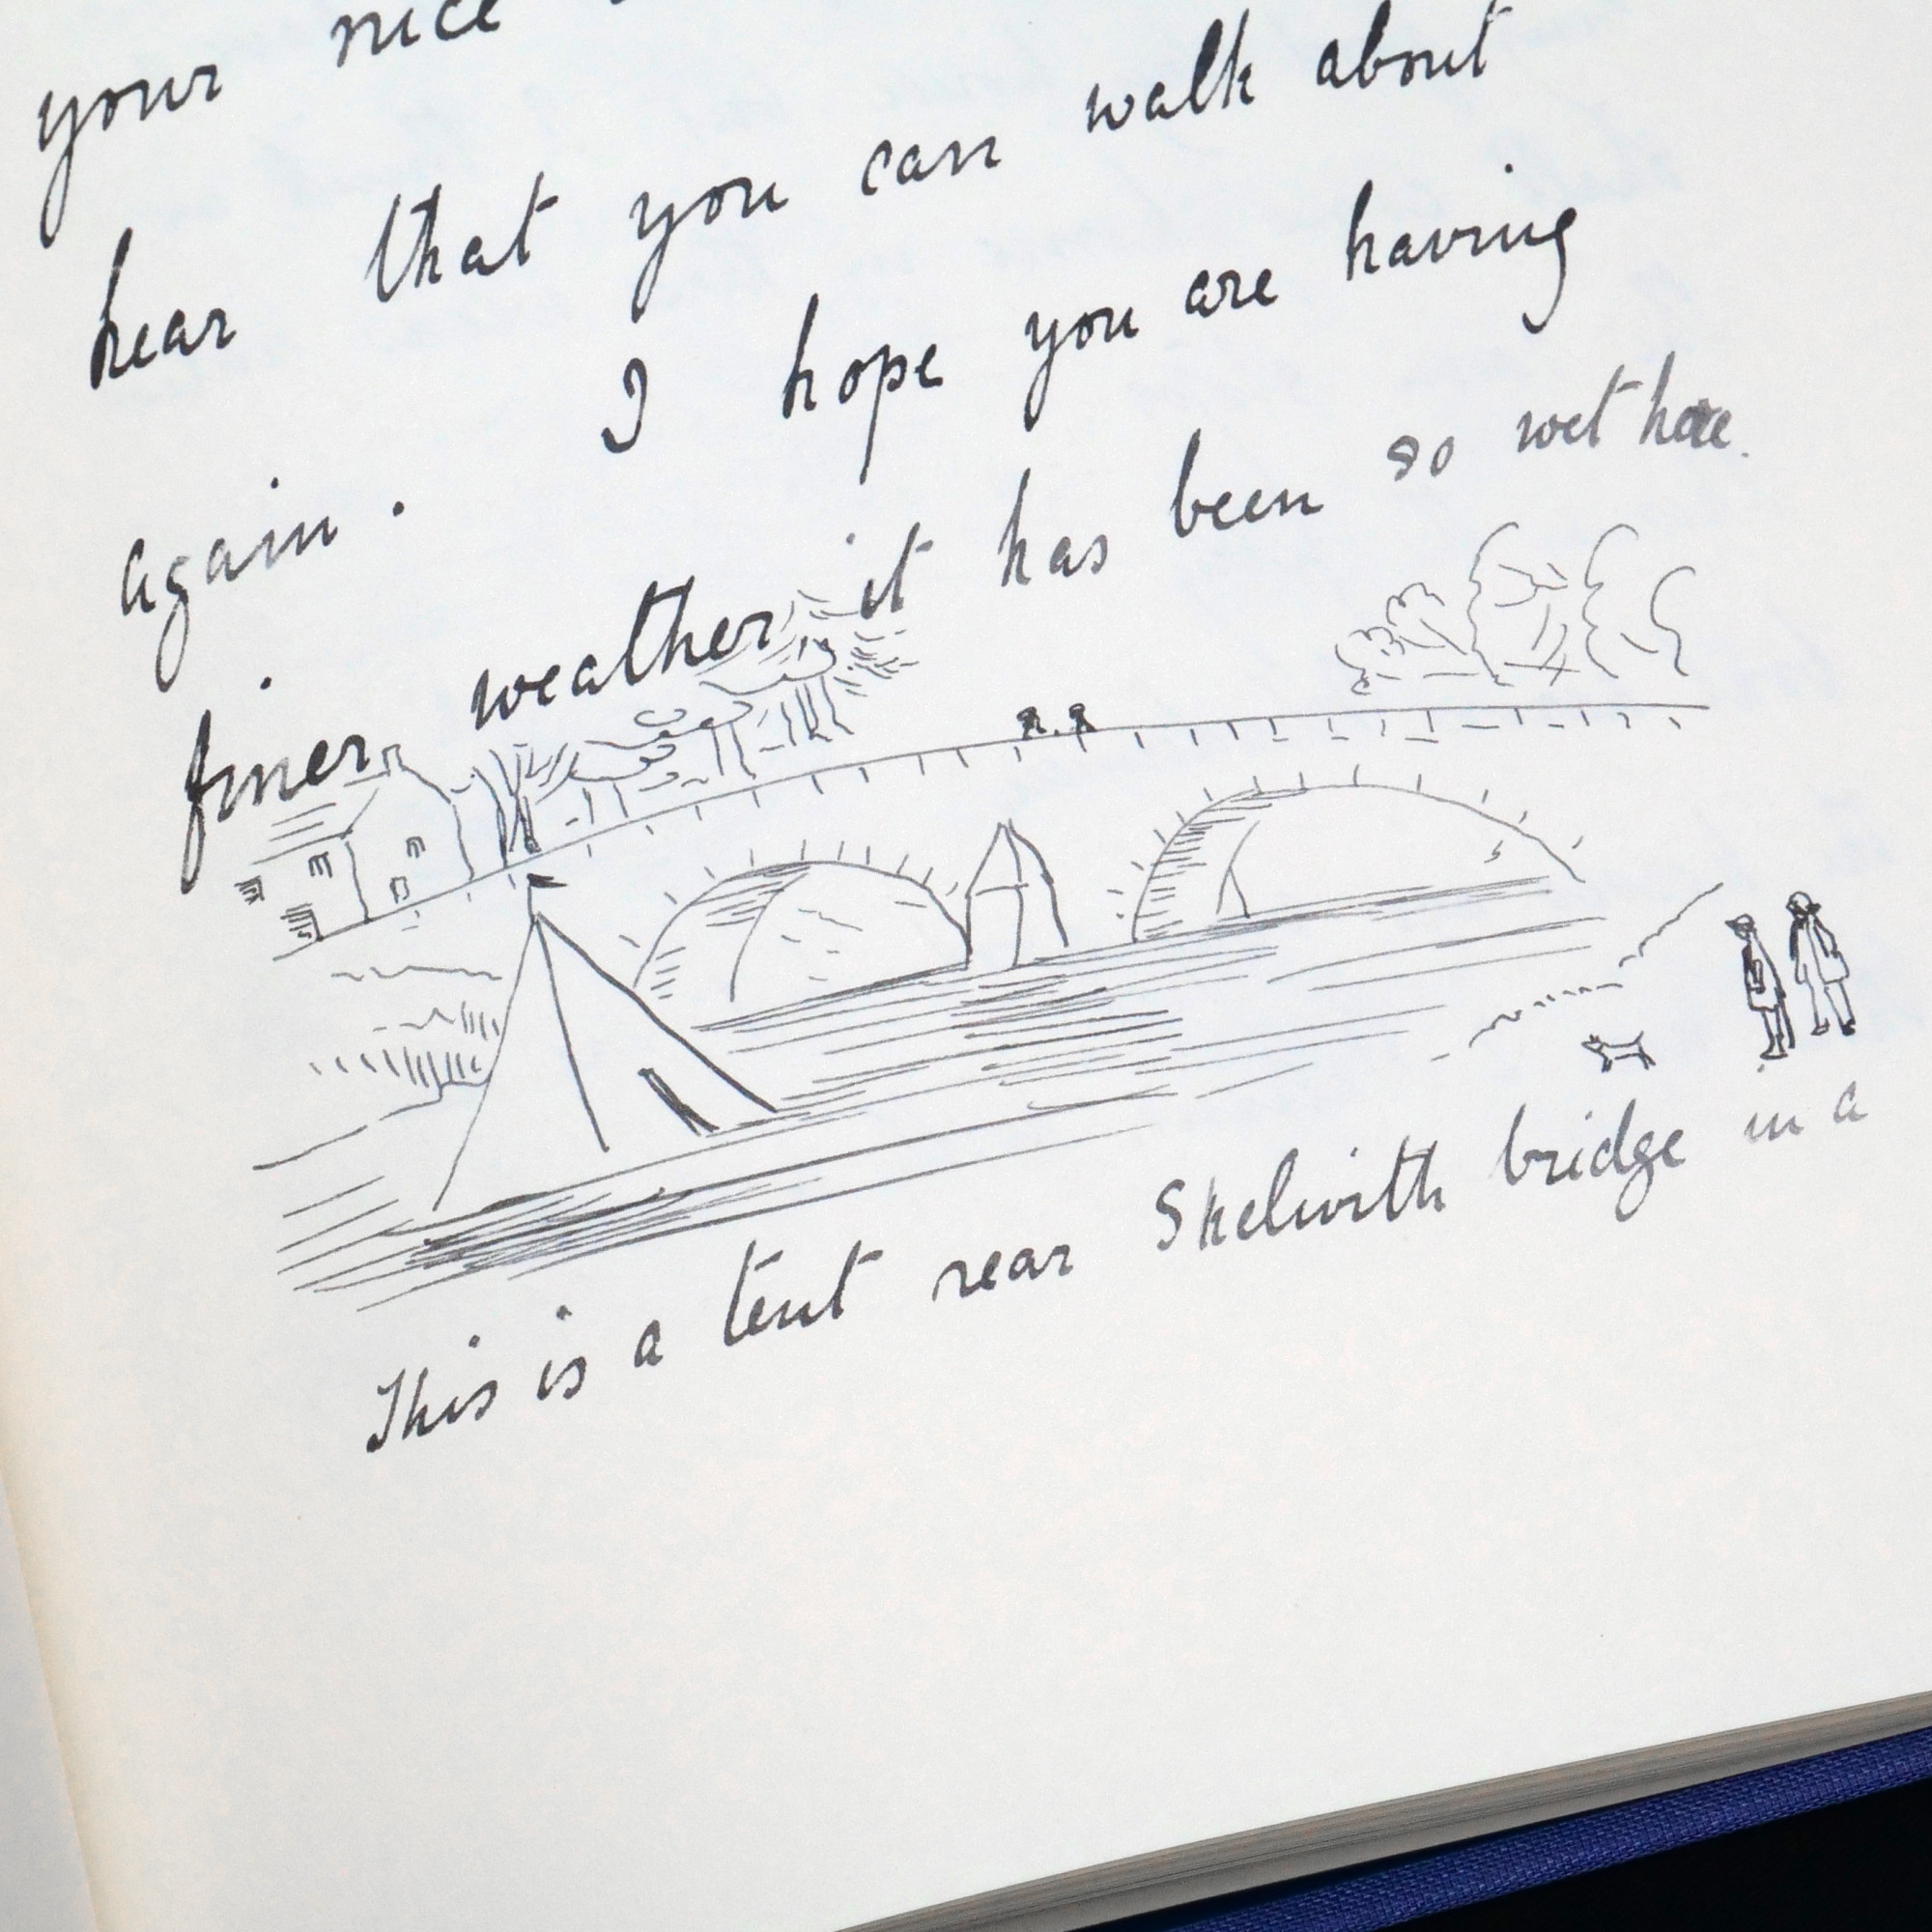 your nice
hear that you can walk about
again. I hope you are having
finer weather, it has been so wet here.
This is a tent near Skelwith bridge in a